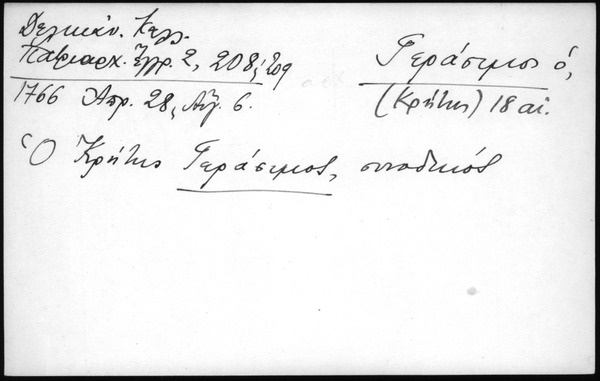 Δελικάν. Καλλ.
Πατριαρχ. Ἔγγρ. 2, 208, 209
1766 Απρ. 28, Αὐγ. 6.
Γεράσιμος ὁ,
(Κρήτης) 18 αἰ.
Ὁ Κρήτης Γεράσιμος, συνοδικός